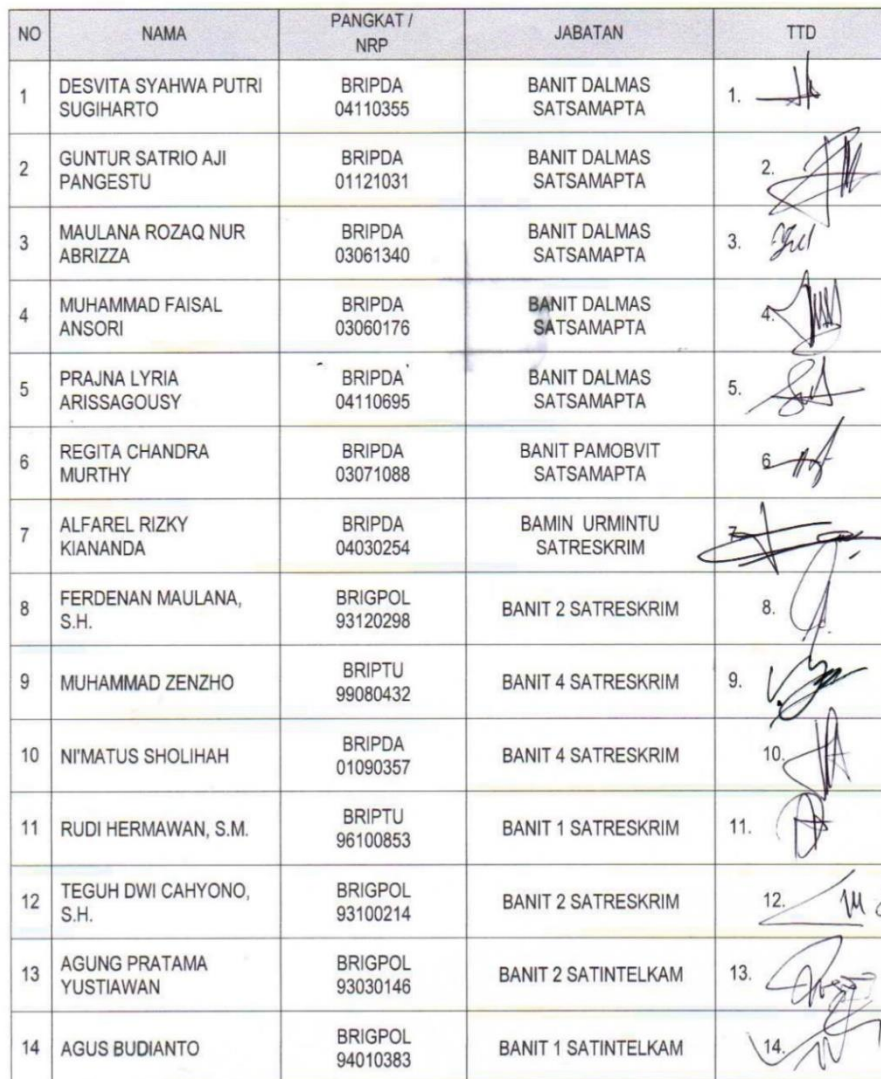 NO NAMA PANGKAT / NRP JABATAN TTD
1 DESVITA SYAHWA PUTRI SUGIHARTO BRIPDA 04110355 BANIT DALMAS SATSAMAPTA 1.
2 GUNTUR SATRIO AJI PANGESTU BRIPDA 01121031 BANIT DALMAS SATSAMAPTA 2.
3 MAULANA ROZAQ NUR ABRIZZA BRIPDA 03061340 BANIT DALMAS SATSAMAPTA 3.
4 MUHAMMAD FAISAL ANSORI BRIPDA 03060176 BANIT DALMAS SATSAMAPTA 4.
5 PRAJNA LYRIA ARISSAGOUSY BRIPDA 04110695 BANIT DALMAS SATSAMAPTA 5.
6 REGITA CHANDRA MURTHY BRIPDA 03071088 BANIT PAMOBVIT SATSAMAPTA 6
7 ALFAREL RIZKY KIANANDA BRIPDA 04030254 BAMIN URMINTU SATRESKRIM 7.
8 FERDENAN MAULANA, S.H. BRIGPOL 93120298 BANIT 2 SATRESKRIM 8.
9 MUHAMMAD ZENZHO BRIPTU 99080432 BANIT 4 SATRESKRIM 9.
10 NI'MATUS SHOLIHAH BRIPDA 01090357 BANIT 4 SATRESKRIM 10.
11 RUDI HERMAWAN, S.M. BRIPTU 96100853 BANIT 1 SATRESKRIM 11.
12 TEGUH DWI CAHYONO, S.H. BRIGPOL 93100214 BANIT 2 SATRESKRIM 12.
13 AGUNG PRATAMA YUSTIAWAN BRIGPOL 93030146 BANIT 2 SATINTELKAM 13.
14 AGUS BUDIANTO BRIGPOL 94010383 BANIT 1 SATINTELKAM 14.